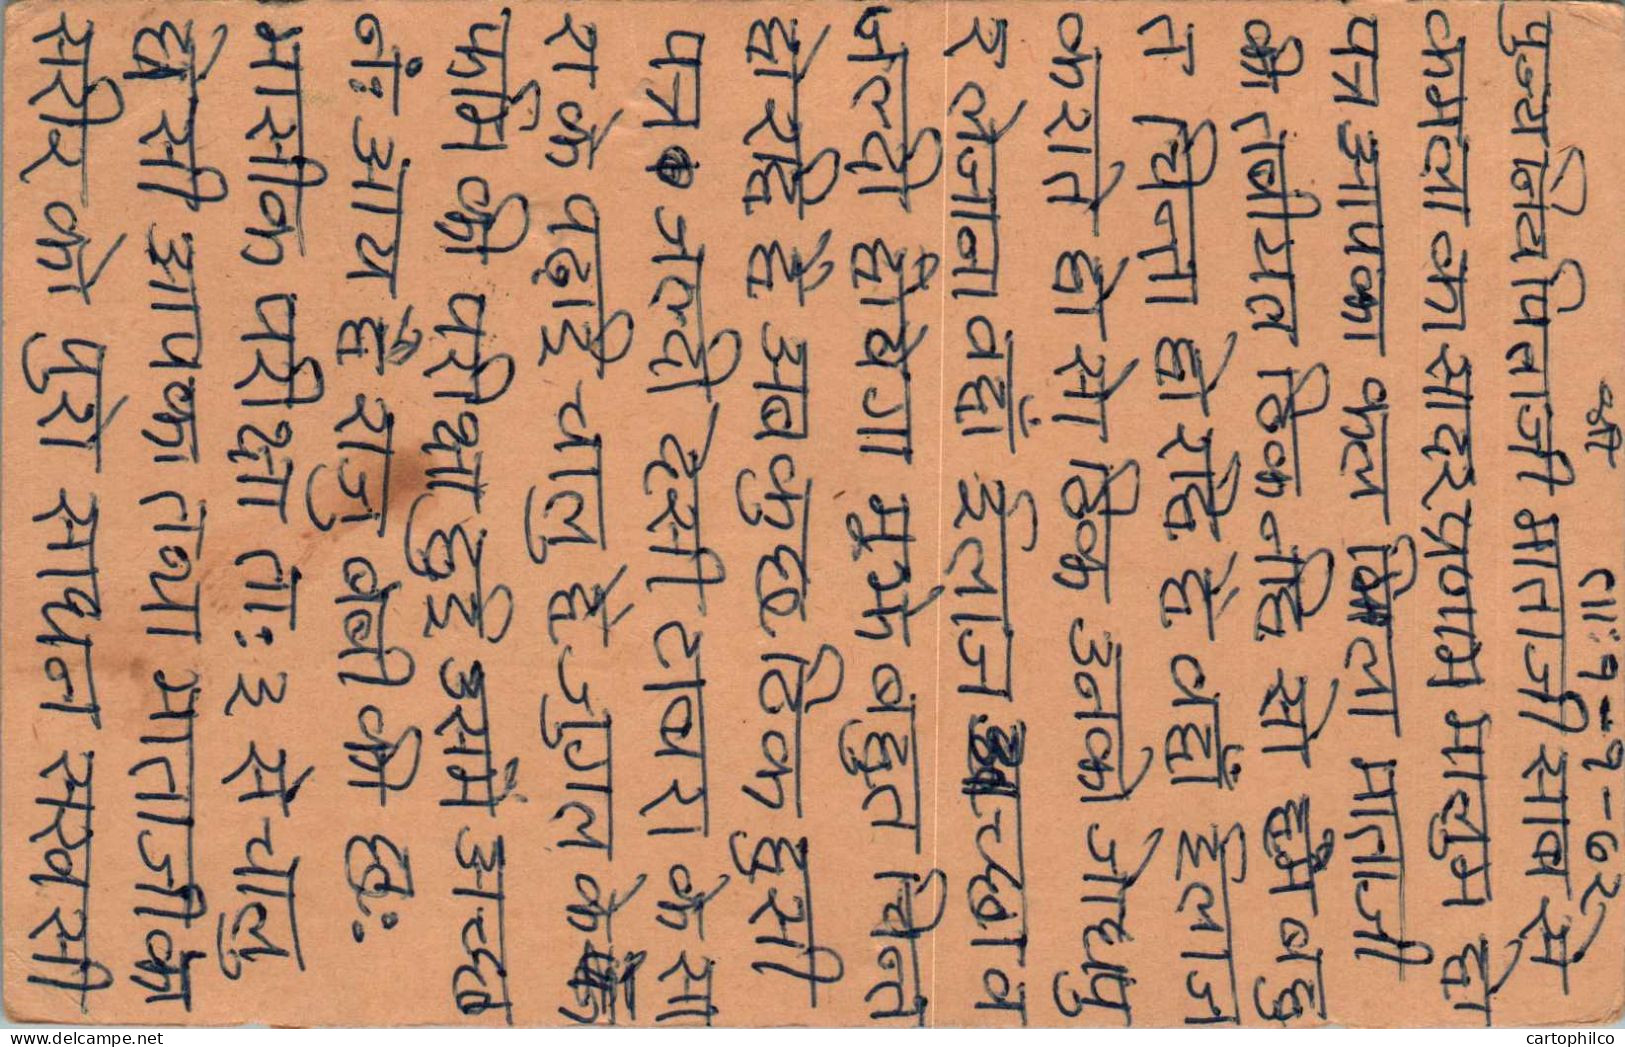 श्री ता:१-१-७२
पुज्यनियपिताजी माताजी सावबसे
कमला का सादर प्रणाम मालुम हो
पत्र आपका कल मिला माताजी
की तबीयत ठिक नहि सो हमे बहु
त चिन्ता हो रहि है वहाँ ईलाज
कराते हो सो ठिक उनको जोधपु
र लेजाना वहां ईलाज अच्छा व
जल्दी होवेगा मुझे बहुत चिन्त
हो रहि है अब कुछ ठिक हुसी
पत्र जल्दी देसी टाबरा के सा
रा के पढाई चालु है जुगल के
फर्म की परीक्षा हुई उसमें अच्छ
नं: आय है राजु बेबी की छ:
मासीक परीक्षा ता: ३ से चालु
होसी आपका तथा माताजी का
सरीर को पुरो साधन सरब सी
cartophilco